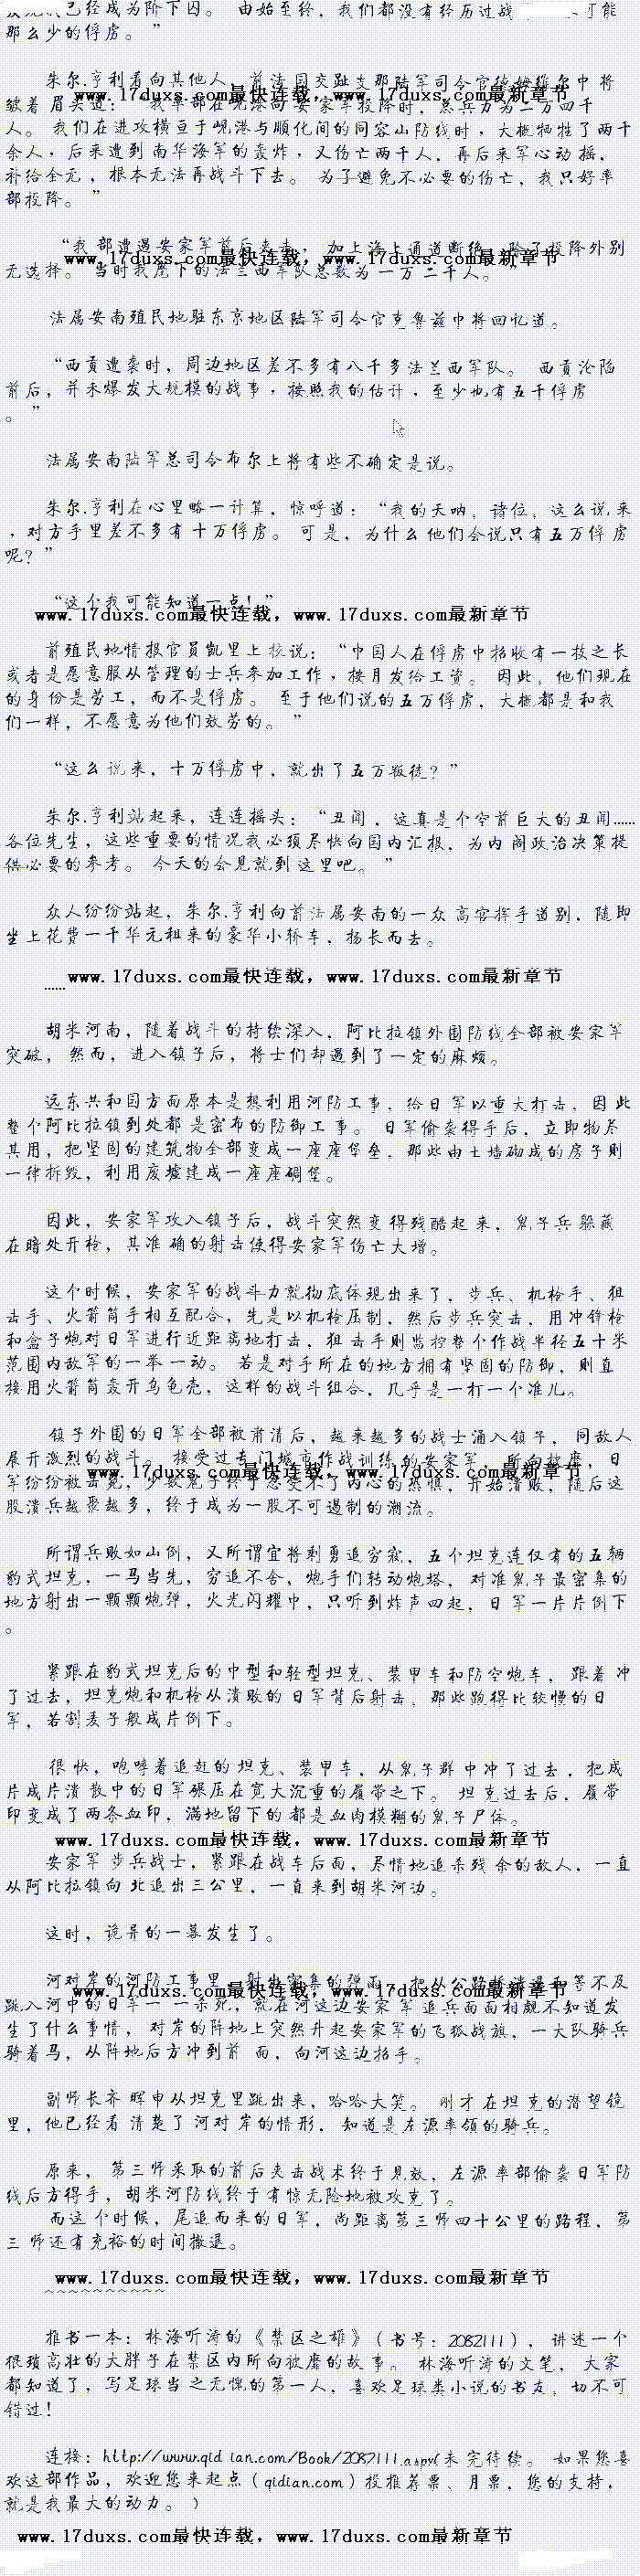 已经成为阶下囚。 由始至终，我们都没有经历过战
那么少的俘虏。”
朱尔.亨利看向其他人，前法国交趾支那陆军司令官德姆维尔中将
www.17duxs.com最快连载，www.17duxs.com最新章节
皱着眉头道：
人。 我们在进攻横亘于岘港与顺化间的同容山防线时，大概牺牲了两千
余人，后来遭到南华海军的轰炸，又伤亡两千人，再后来军心动摇，
补给全无，根本无法再战斗下去。 为了避免不必要的伤亡，我只好率
部投降。”
“我部遭遇安家军前后夹击， 加上海上通道断绝，除了投降外别
www.17duxs.com最快连载，www.17duxs.com最新章节
无选择。 当时我麾下的法兰西军队总数为一万二千人。”
法属安南殖民地驻东京地区陆军司令官克鲁兹中将回忆道。
“西贡遭袭时，周边地区差不多有八千多法兰西军队。 西贡沦陷
前后，并未爆发大规模的战事，按照我的估计，至少也有五千俘虏
。”
法属安南陆军总司令布尔上将有些不确定是说。
朱尔.亨利在心里略一计算，惊呼道：“我的天呐，诸位，这么说来
，对方手里差不多有十万俘虏。 可是，为什么他们会说只有五万俘虏
呢？”
“这个我可能知道一点！”
www.17duxs.com最快连载，www.17duxs.com最新章节
前殖民地情报官员凯里上校说：“中国人在俘虏中招收有一技之长
或者是愿意服从管理的士兵参加工作，按月发给工资。 因此，他们现在
的身份是劳工，而不是俘虏。 至于他们说的五万俘虏，大概都是和我
们一样，不愿意为他们效劳的。”
“这么说来，十万俘虏中，就出了五万叛徒？”
朱尔.亨利站起来，连连摇头：“丑闻，这真是个空前巨大的丑闻……
各位先生，这些重要的情况我必须尽快向国内汇报，为内阁政治决策提
供必要的参考。 今天的会见就到这里吧。”
众人纷纷站起，朱尔.亨利向前法属安南的一众高官挥手道别，随即
坐上花费一千华元租来的豪华小轿车，扬长而去。
www.17duxs.com最快连载，www.17duxs.com最新章节
……
胡米河南，随着战斗的持续深入，阿比拉镇外围防线全部被安家军
突破，然而，进入镇子后，将士们却遇到了一定的麻烦。
远东共和国方面原本是想利用河防工事，给日军以重大打击，因此
整个阿比拉镇到处都是密布的防御工事。 日军偷袭得手后，立即物尽
其用，把坚固的建筑物全部变成一座座堡垒，那些由土墙砌成的房子则
一律拆毁，利用废墟建成一座座碉堡。
因此，安家军攻入镇子后，战斗突然变得残酷起来，鬼子兵躲藏
在暗处开枪，其准确的射击使得安家军伤亡大增。
这个时候，安家军的战斗力就彻底体现出来了，步兵、机枪手、狙
击手、火箭筒手相互配合，先是以机枪压制，然后步兵突击，用冲锋枪
和盒子炮对日军进行近距离地打击，狙击手则监控整个作战半径五十米
范围内敌军的一举一动。 若是对手所在的地方拥有坚固的防御，则直
接用火箭筒轰开乌龟壳，这样的战斗组合，几乎是一打一个准儿。
镇子外围的日军全部被肃清后，越来越多的战士涌入镇子，同敌人
展开激烈的战斗。 接受过专门城市作战训练的安家军，所向披靡，日
www.17duxs.com最快连载，www.17duxs.com最新章节
军纷纷被击毙，少数鬼子终于忍受不了内心的恐惧，开始溃败，随后这
股溃兵越聚越多，终于成为一股不可遏制的潮流。
所谓兵败如山倒，又所谓宜将剩勇追穷寇，五个坦克连仅有的五辆
豹式坦克，一马当先，穷追不舍，炮手们转动炮塔，对准鬼子最密集的
地方射出一颗颗炮弹，火光闪耀中，只听到炸声四起，日军一片片倒下
。
紧跟在豹式坦克后的中型和轻型坦克、装甲车和防空炮车，跟着冲
了过去，坦克炮和机枪从溃败的日军背后射击，那些跑得比较慢的日
军，若割麦子般成片倒下。
很快，咆哮着追赶的坦克、装甲车，从鬼子群中冲了过去，把成
片成片溃散中的日军碾压在宽大沉重的履带之下。 坦克过去后，履带
印变成了两条血印，满地留下的都是血肉模糊的鬼子尸体。
www.17duxs.com最快连载，www.17duxs.com最新章节
安家军步兵战士，紧跟在战车后面，尽情地追杀残余的敌人，一直
从阿比拉镇向北追出三公里，一直来到胡米河边。
这时，诡异的一幕发生了。
河对岸的河防工事里，射出密集的弹雨，把从公路桥溃退和等不及
www.17duxs.com最快连载，www.17duxs.com最新章节
跳入河中的日军一一杀死，就在河这边安家军追兵面面相觑不知道发
生了什么事情，对岸的阵地上突然升起安家军的飞狐战旗，一大队骑兵
骑着马，从阵地后方冲到前面，向河这边招手。
副师长齐晖申从坦克里跳出来，哈哈大笑。 刚才在坦克的潜望镜
里，他已经看清楚了河对岸的情形，知道是左源率领的骑兵。
原来，第三师采取的前后夹击战术终于见效，左源率部偷袭日军防
线后方得手，胡米河防线终于有惊无险地被攻克了。
而这个时候，尾追而来的日军，尚距离第三师四十公里的路程，第
三师还有充裕的时间撤退。
www.17duxs.com最快连载，www.17duxs.com最新章节
~~~~~~~~~~
推书一本：林海听涛的《禁区之雄》（书号：2082111），讲述一个
很猥高壮的大胖子在禁区内所向披靡的故事。 林海听涛的文笔，大家
都知道了，写足球当之无愧的第一人，喜欢足球类小说的书友，切不可
错过！
连接：http://www.qidian.com/Book/2082111.aspx(未完待续。 如果您喜
欢这部作品，欢迎您来起点（qidian.com）投推荐票、月票，您的支持，
就是我最大的动力。）
www.17duxs.com最快连载，www.17duxs.com最新章节